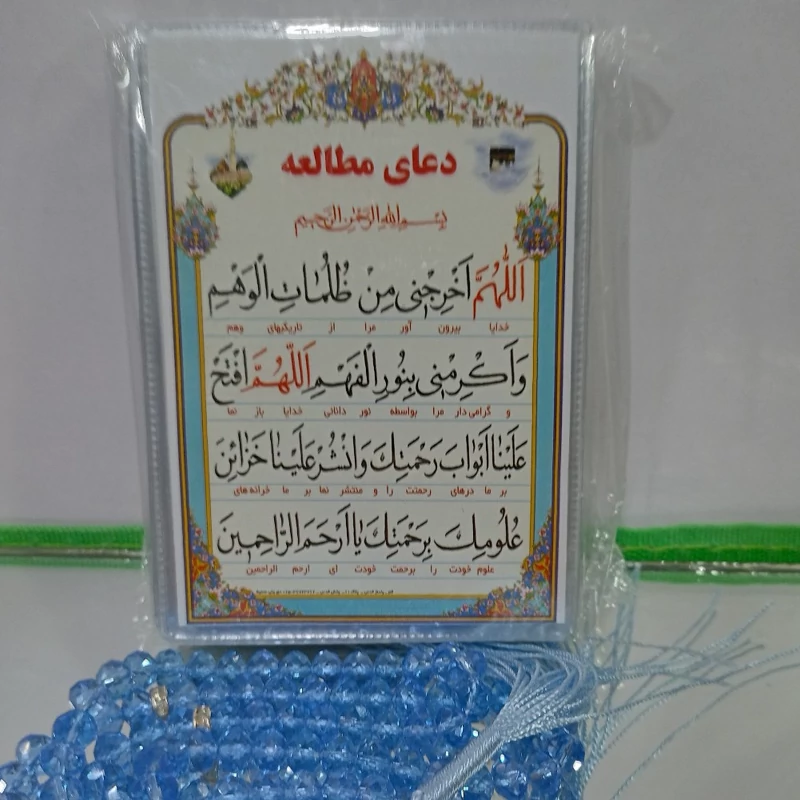 دعای مطالعه
بسم الله الرحمن الرحیم
اَللّٰهُمَّ اَخْرِجْنی مِنْ ظُلُمٰاتِ الْوَهْمِ
خدایا بیرون آور مرا از تاریکیهای وهم
وَاَکْرِمْنی بِنُورِ الْفَهْمِ اَللّٰهُمَّ افْتَحْ
و گرامی‌دار مرا بواسطه نور دانائی خدایا باز نما
عَلَیْنٰا اَبْوٰابَ رَحْمَتِكَ وَانْشُرْ عَلَیْنٰا خَزٰائِنَ
بر ما درهای رحمتت را و منتشر نما بر ما خزانه‌های
عُلُومِكَ بِرَحْمَتِكَ یٰا اَرْحَمَ الرّٰاحِمینَ
علوم خودت را برحمت خودت ای ارحم الراحمین